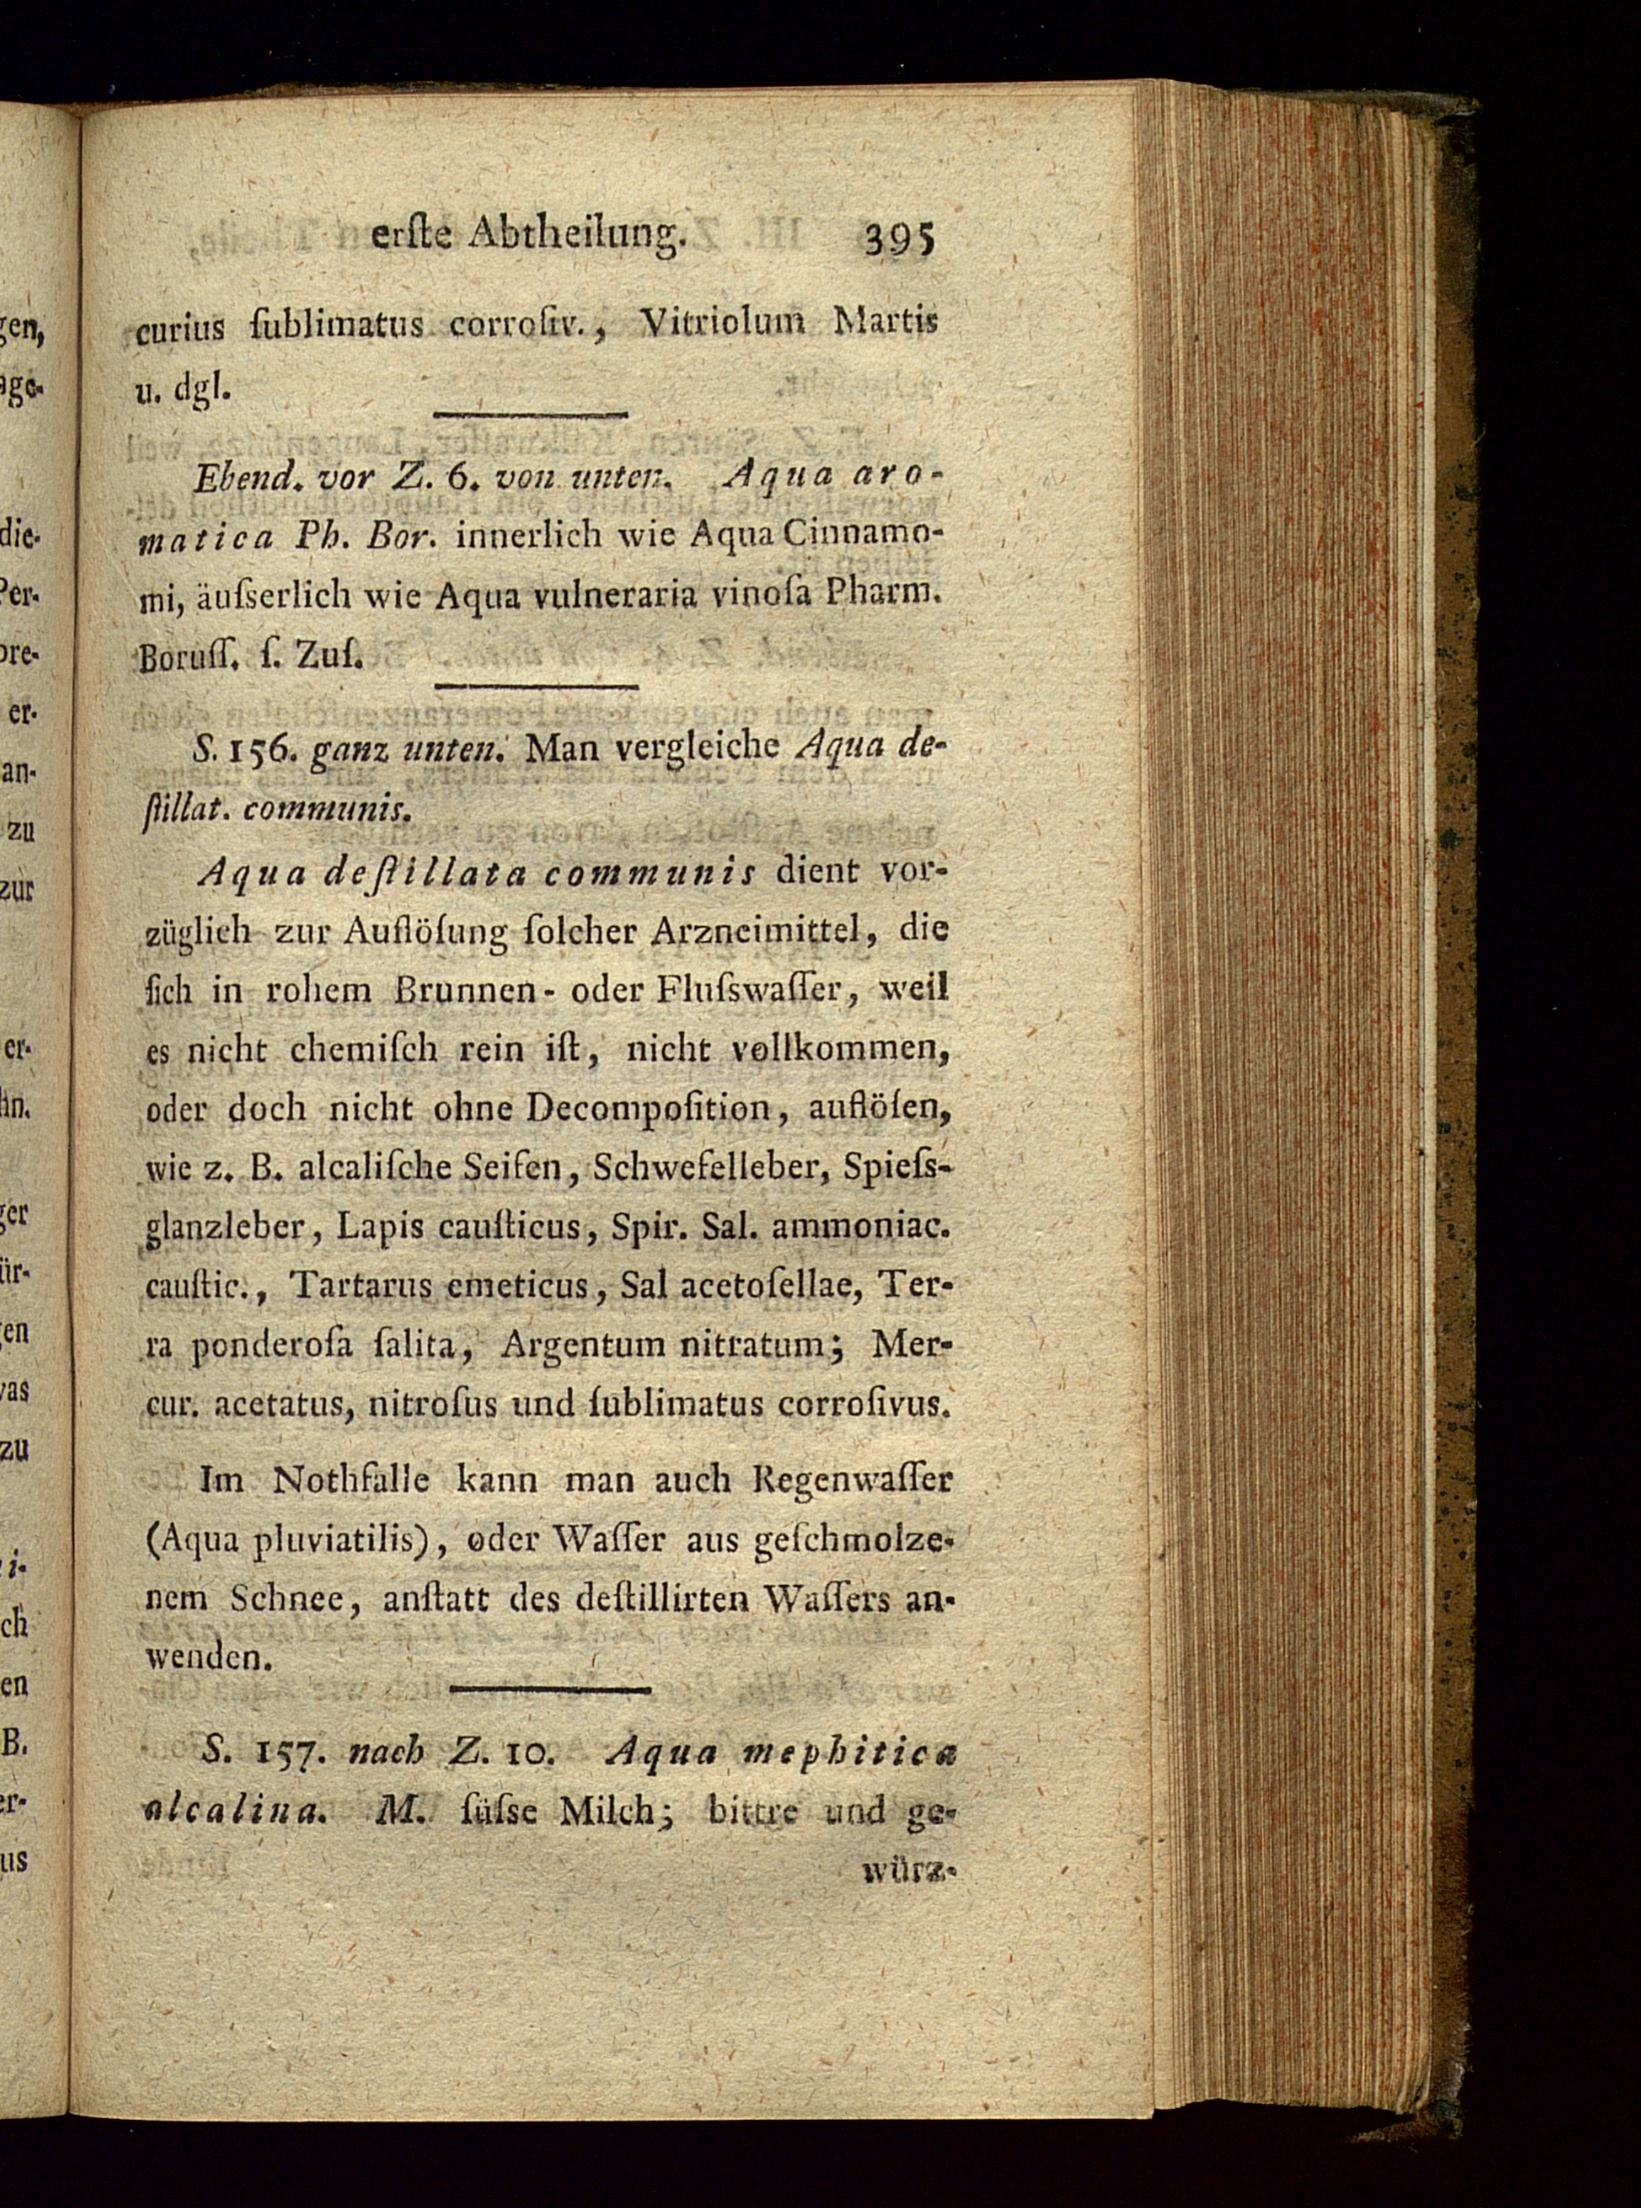 erſte Abtheilung. 395
curius ſublimatus corroſiv., Vitriolum Martis
u. dgl.
Ebend. vor Z. 6. von unten. Aqua aro-
matica Ph. Bor. innerlich wie Aqua Cinnamo-
mi, äuſserlich wie Aqua vulneraria vinoſa Pharm.
Boruſſ. ſ. Zuſ.
S. 156. ganz unten. Man vergleiche Aqua de-
ſtillat. communis.
Aqua deſtillata communis dient vor-
züglich zur Auflöſung ſolcher Arzneimittel, die
ſich in rohem Brunnen- oder Fluſswaſſer, weil
es nicht chemiſch rein iſt, nicht vollkommen,
oder doch nicht ohne Decompoſition, auflöſen,
wie z. B. alcaliſche Seifen, Schwefelleber, Spieſs-
glanzleber, Lapis cauſticus, Spir. Sal. ammoniac.
cauſtic., Tartarus emeticus, Sal acetoſellae, Ter-
ra ponderoſa ſalita, Argentum nitratum; Mer-
cur. acetatus, nitroſus und ſublimatus corroſivus.
Im Nothfalle kann man auch Regenwaſſer
(Aqua pluviatilis), oder Waſſer aus geſchmolze-
nem Schnee, anſtatt des deſtillirten Waſſers an-
wenden.
S. 157. nach Z. 10. Aqua mephitica
alcalina. M. ſüſse Milch; bittre und ge-
würz-